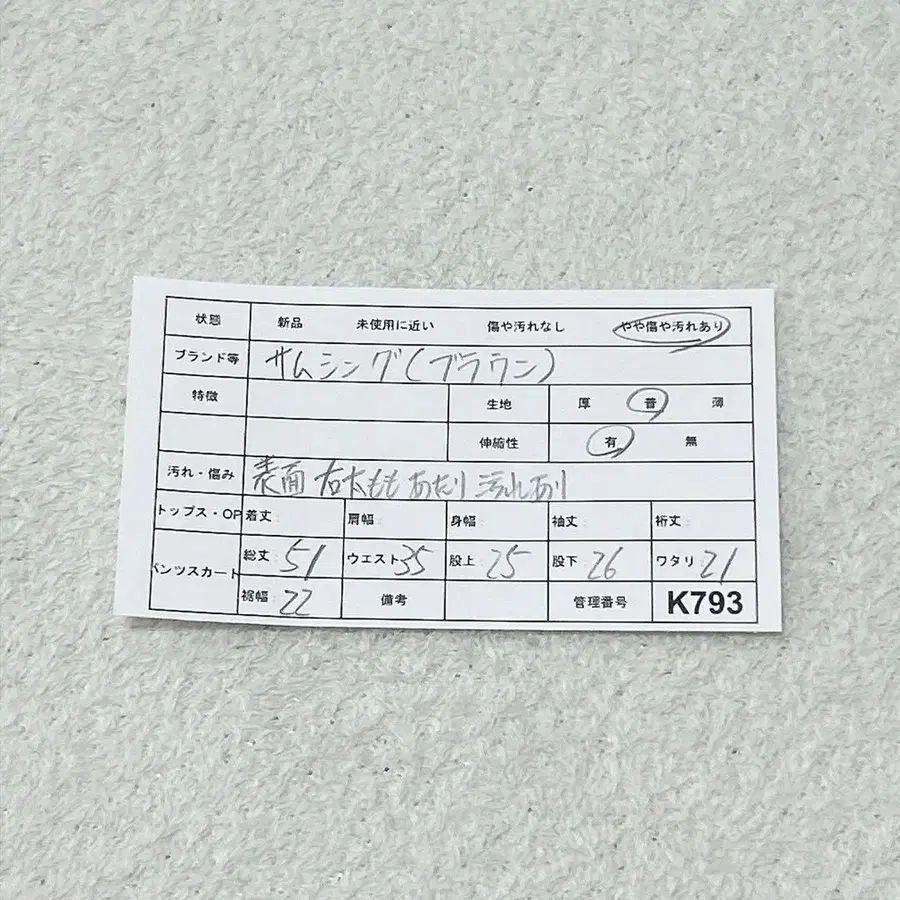 状態 新品 未使用に近い 傷や汚れなし やや傷や汚れあり
ブランド等 サムシング(ブラウン)
特徴 生地 厚 普 薄
伸縮性 有 無
汚れ・傷み 表面 右太ももあたり 汚れあり
トップス・OP 着丈: 肩幅: 身幅: 袖丈: 裄丈:
パンツスカート 総丈: 51 ウエスト 35 股上: 25 股下: 26 ワタリ: 21
裾幅: 22 備考 管理番号 K793